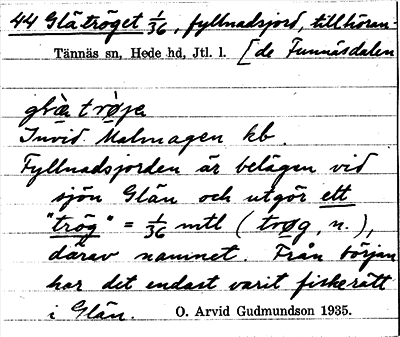 44 Glätröget 1/36, fyllnadsjord, tillhöran-
Tännäs sn, Hede hd, Jtl. l. [de Funnäsdalen
Invid Malmagen kb.
Fyllnadsjorden är belägen vid
sjön Glän och utgör ett
"trög" = 1/36 mtl (trøg, n.),
därav namnet. Från början
har det endast varit fiskerätt
i Glän. O. Arvid Gudmundson 1935.